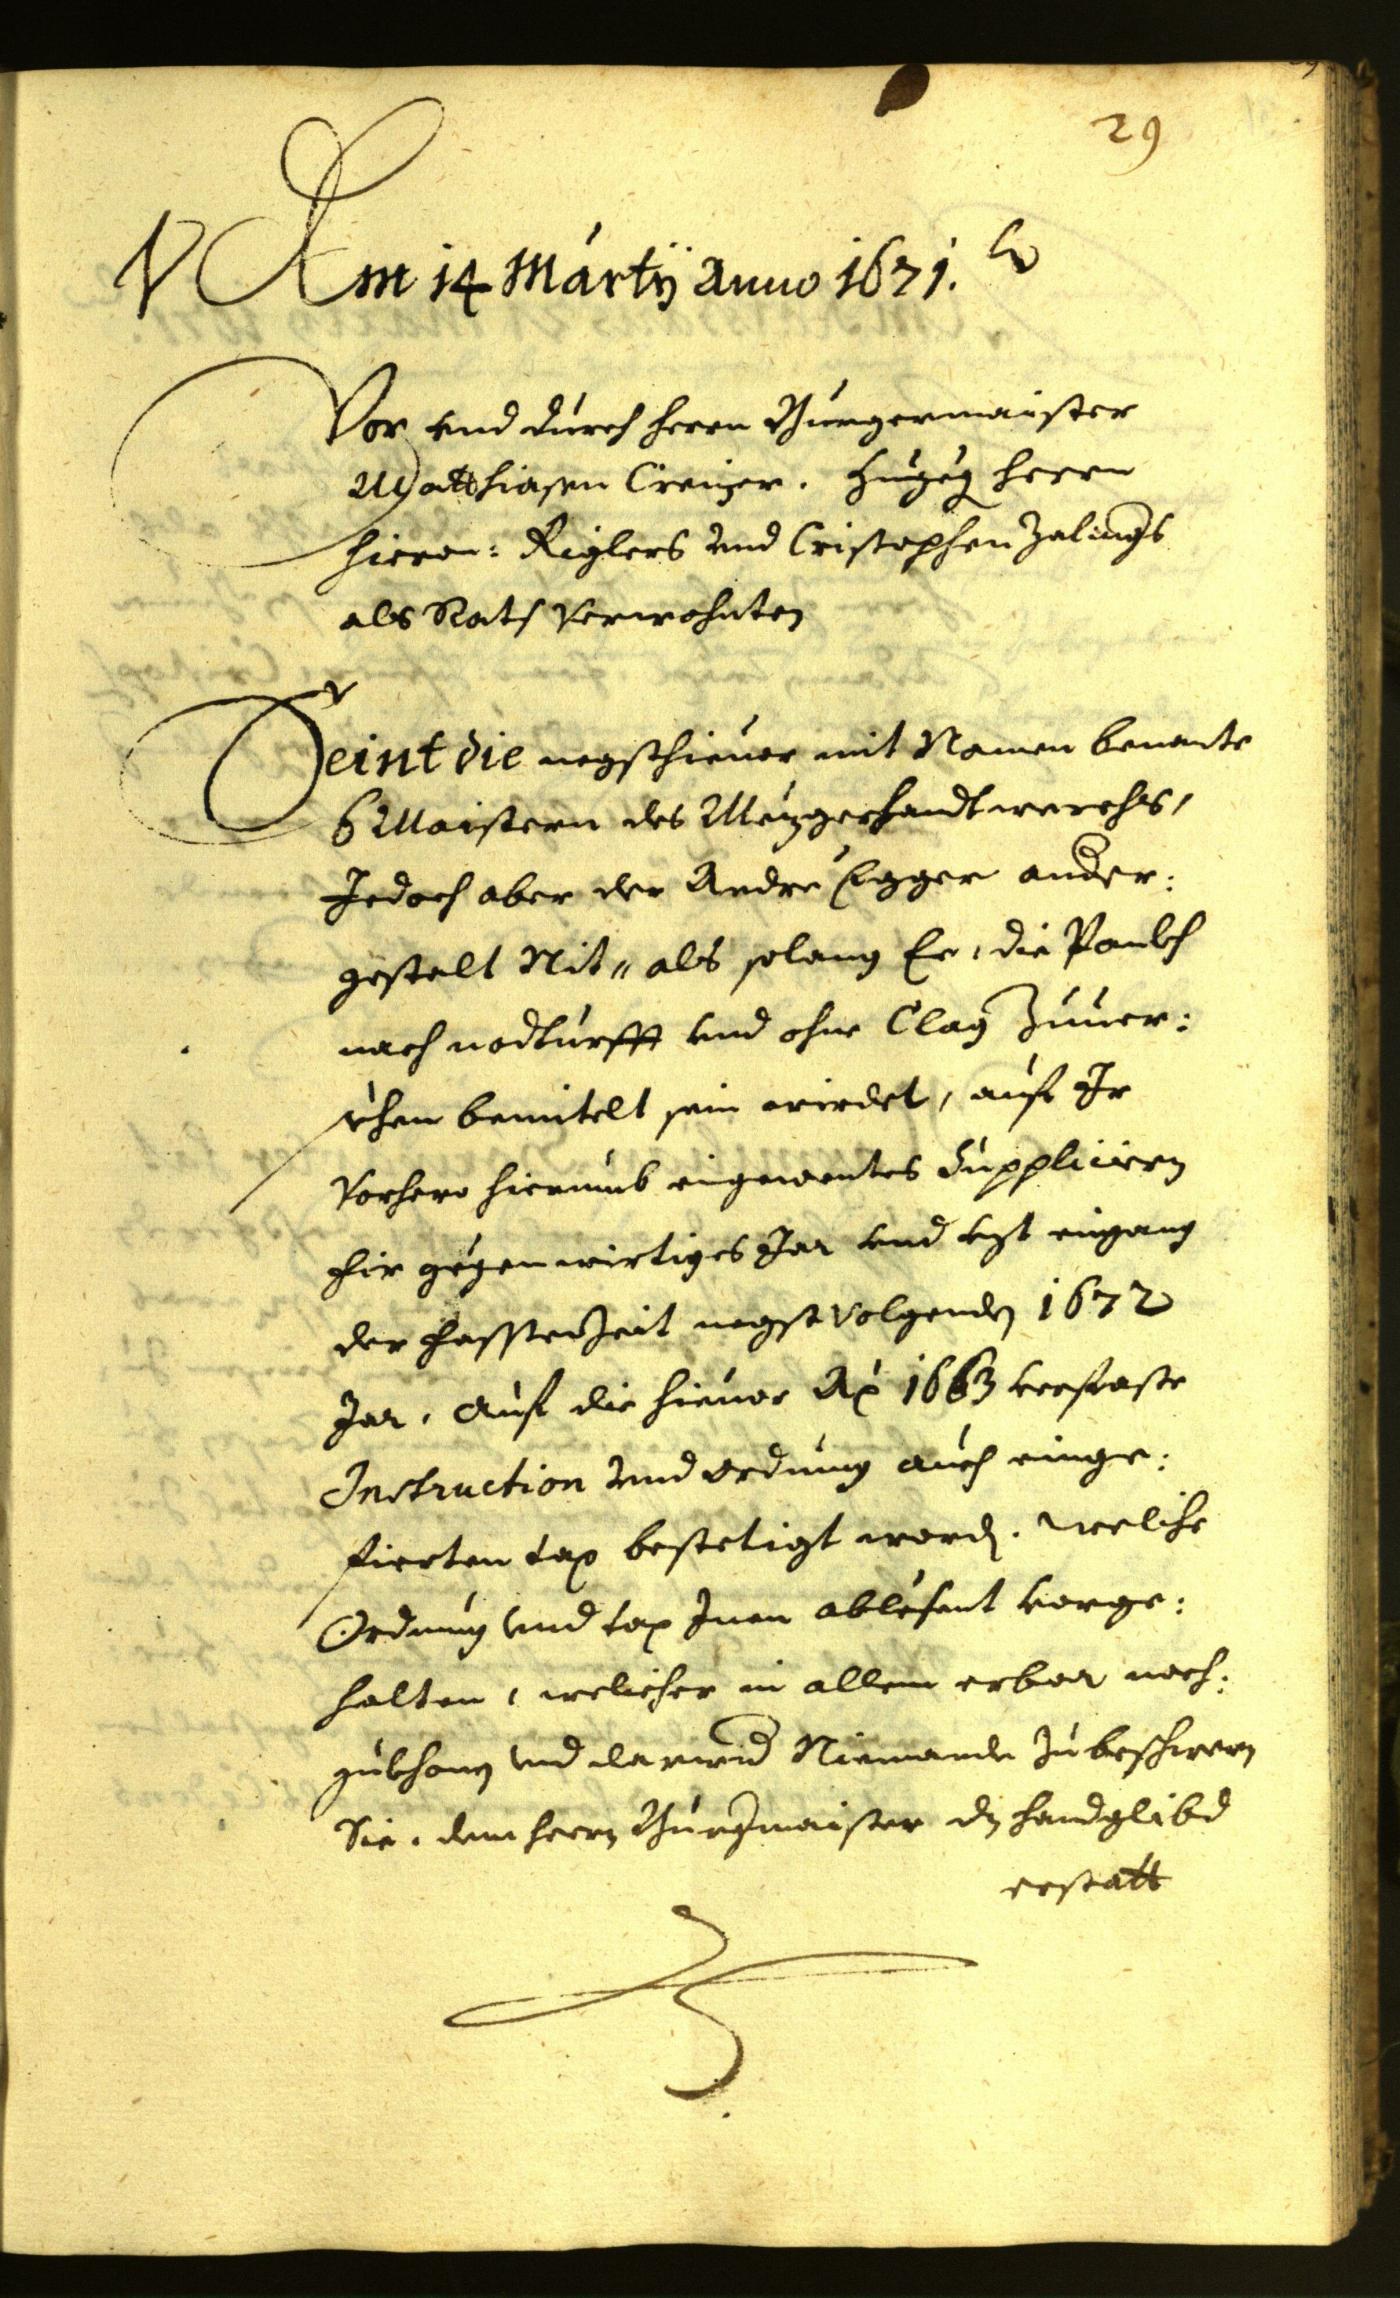 29
Am 14 Martÿ Anno 1671.
Vor vnd durch herrn Burgermaister
Matthiasen Creizer. Zuzug herrn
Hieron: Riglers vnd Cristophen Zalings
als Rats Verwohnten
Seint die negsthieuor mit Namen benante
6 Maistern des Mezgerhandtwerchs,
Jedoch aber der Andre Egger ander:
gestalt Nit,, als solang Er, die Panckh
nach nodturfft vnd ohne Clag Zuuer:
sehen bemitelt sein wirdet, auf Ir
Vorhero hierumb eingewentes Suppliciern
fir gegenwirtiges Jar vnd bist eingang
der fasstenZeit negstVolgenden 1672
Jar. Auf die hieuor Ao 1663 verfaste
Instruction vnd ordnung auch einge:
fierten tax bestetigt word. Weliche
Ordnung vnd tax Inen ablesent vorge:
halten, welicher in allem erbar nach:
zukhomen vnd darwid Niemande zubeschwern
Sie. dem herrn Burgmaister dz handglibd
erstatt